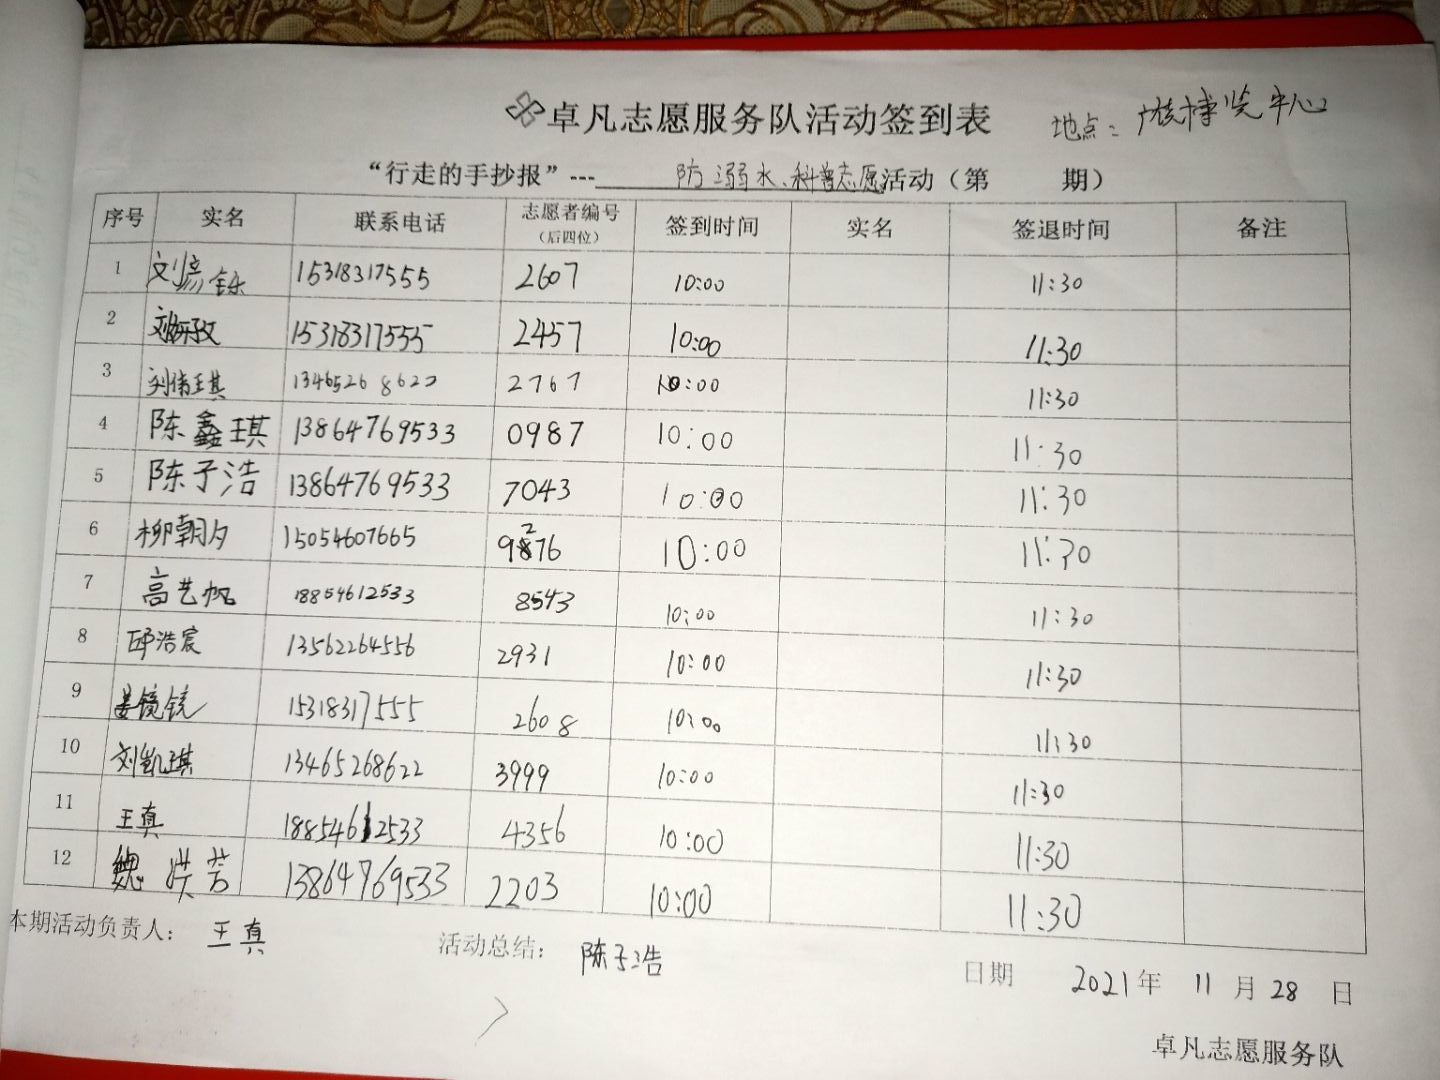 卓凡志愿服务队活动签到表 地点：广饶博览中心
“行走的手抄报”---防溺水、科普志愿活动（第 期）
序号 实名 联系电话 志愿者编号（后四位） 签到时间 实名 签退时间 备注
1 刘彦铄 15318317555 2607 10:00 11:30
2 15318317555 2457 10:00 11:30
3 刘伟琪 13465268622 2767 10:00 11:30
4 陈鑫琪 13864769533 0987 10:00 11:30
5 陈子浩 13864769533 7043 10:00 11:30
6 柳朝夕 15054607665 9276 10:00 11:30
7 高艺帆 18854612533 8543 10:00 11:30
8 邱浩宸 13562264556 2931 10:00 11:30
9 姜镜铳 15318317555 2608 10:00 11:30
10 刘凯琪 13465268622 3999 10:00 11:30
11 王真 18854612533 4356 10:00 11:30
12 魏洪芳 13864769533 2203 10:00 11:30
本期活动负责人： 王真 活动总结： 陈子浩 日期 2021年 11月28日
卓凡志愿服务队